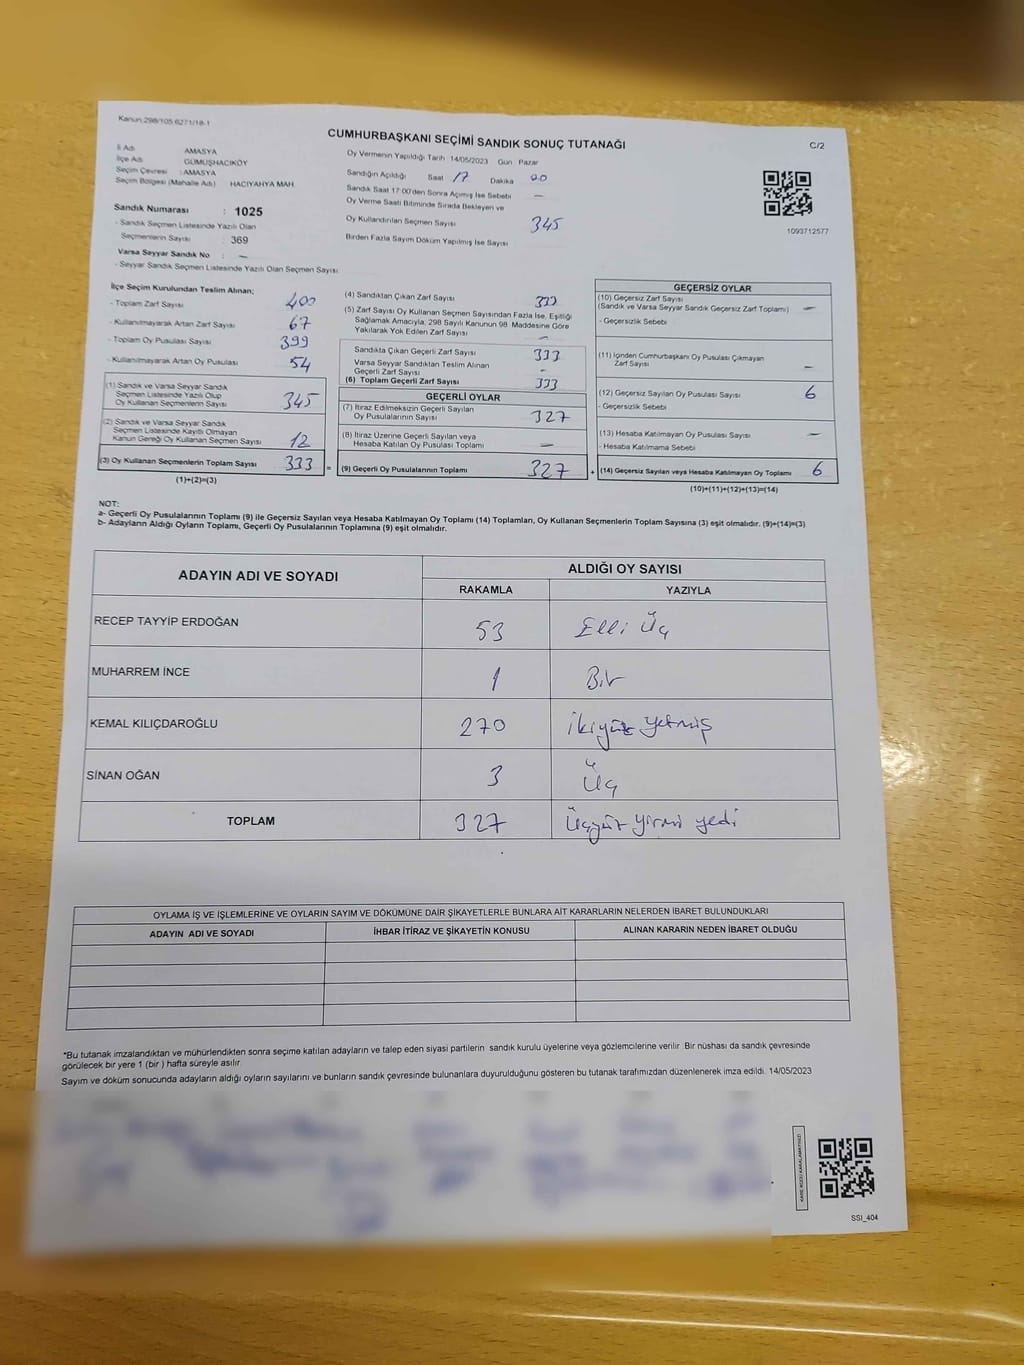 Kanun:298/105.6271/18-1
CUMHURBAŞKANI SEÇİMİ SANDIK SONUÇ TUTANAĞI
C/2
İl Adı : AMASYA
İlçe Adı : GÜMÜŞHACIKÖY
Seçim Çevresi : AMASYA
Seçim Bölgesi (Mahalle Adı) HACIYAHYA MAH.
Sandık Numarası : 1025
- Sandık Seçmen Listesinde Yazılı Olan
Seçmenlerin Sayısı : 369
Varsa Seyyar Sandık No : —
- Seyyar Sandık Seçmen Listesinde Yazılı Olan Seçmen Sayısı:
Oy Vermenin Yapıldığı Tarih : 14/05/2023 Gün : Pazar
Sandığın Açıldığı Saat 17 Dakika 00
Sandık Saat 17:00'den Sonra Açılmış İse Sebebi —
Oy Verme Saati Bitiminde Sırada Bekleyen ve
Oy Kullandırılan Seçmen Sayısı 345
Birden Fazla Sayım Döküm Yapılmış İse Sayısı
1093712577
İlçe Seçim Kurulundan Teslim Alınan;
- Toplam Zarf Sayısı 400
- Kullanılmayarak Artan Zarf Sayısı 67
- Toplam Oy Pusulası Sayısı 399
- Kullanılmayarak Artan Oy Pusulası 54
(1) Sandık ve Varsa Seyyar Sandık
Seçmen Listesinde Yazılı Olup
Oy Kullanan Seçmenlerin Sayısı 345
(2) Sandık ve Varsa Seyyar Sandık
Seçmen Listesinde Kayıtlı Olmayan
Kanun Gereği Oy Kullanan Seçmen Sayısı 12
(3) Oy Kullanan Seçmenlerin Toplam Sayısı 333
(1)+(2)=(3)
(4) Sandıktan Çıkan Zarf Sayısı 333
(5) Zarf Sayısı Oy Kullanan Seçmen Sayısından Fazla İse, Eşitliği
Sağlamak Amacıyla, 298 Sayılı Kanunun 98. Maddesine Göre
Yakılarak Yok Edilen Zarf Sayısı —
Sandıkta Çıkan Geçerli Zarf Sayısı 333
Varsa Seyyar Sandıktan Teslim Alınan
Geçerli Zarf Sayısı -
(6) Toplam Geçerli Zarf Sayısı 333
GEÇERLİ OYLAR
(7) İtiraz Edilmeksizin Geçerli Sayılan
Oy Pusulalarının Sayısı 327
(8) İtiraz Üzerine Geçerli Sayılan veya
Hesaba Katılan Oy Pusulası Toplamı —
= (9) Geçerli Oy Pusulalarının Toplamı 327 +
GEÇERSİZ OYLAR
(10) Geçersiz Zarf Sayısı
(Sandık ve Varsa Seyyar Sandık Geçersiz Zarf Toplamı) —
- Geçersizlik Sebebi
(11) İçinden Cumhurbaşkanı Oy Pusulası Çıkmayan
Zarf Sayısı —
(12) Geçersiz Sayılan Oy Pusulası Sayısı 6
- Geçersizlik Sebebi
(13) Hesaba Katılmayan Oy Pusulası Sayısı —
- Hesaba Katılmama Sebebi
(14) Geçersiz Sayılan veya Hesaba Katılmayan Oy Toplamı 6
(10)+(11)+(12)+(13)=(14)
NOT:
a- Geçerli Oy Pusulalarının Toplamı (9) ile Geçersiz Sayılan veya Hesaba Katılmayan Oy Toplamı (14) Toplamları, Oy Kullanan Seçmenlerin Toplam Sayısına (3) eşit olmalıdır. (9)+(14)=(3)
b- Adayların Aldığı Oyların Toplamı, Geçerli Oy Pusulalarının Toplamına (9) eşit olmalıdır.
ADAYIN ADI VE SOYADI
ALDIĞI OY SAYISI
RAKAMLA YAZIYLA
RECEP TAYYİP ERDOĞAN 53 Elli Üç
MUHARREM İNCE 1 Bir
KEMAL KILIÇDAROĞLU 270 İkiyüz yetmiş
SİNAN OĞAN 3 Üç
TOPLAM 327 Üçyüz yirmi yedi
OYLAMA İŞ VE İŞLEMLERİNE VE OYLARIN SAYIM VE DÖKÜMÜNE DAİR ŞİKAYETLERLE BUNLARA AİT KARARLARIN NELERDEN İBARET BULUNDUKLARI
ADAYIN ADI VE SOYADI İHBAR İTİRAZ VE ŞİKAYETİN KONUSU ALINAN KARARIN NEDEN İBARET OLDUĞU
*Bu tutanak imzalandıktan ve mühürlendikten sonra seçime katılan adayların ve talep eden siyasi partilerin sandık kurulu üyelerine veya gözlemcilerine verilir. Bir nüshası da sandık çevresinde
görülecek bir yere 1 (bir ) hafta süreyle asılır.
Sayım ve döküm sonucunda adayların aldığı oyların sayılarını ve bunların sandık çevresinde bulunanlara duyurulduğunu gösteren bu tutanak tarafımızdan düzenlenerek imza edildi. 14/05/2023
SSI_404